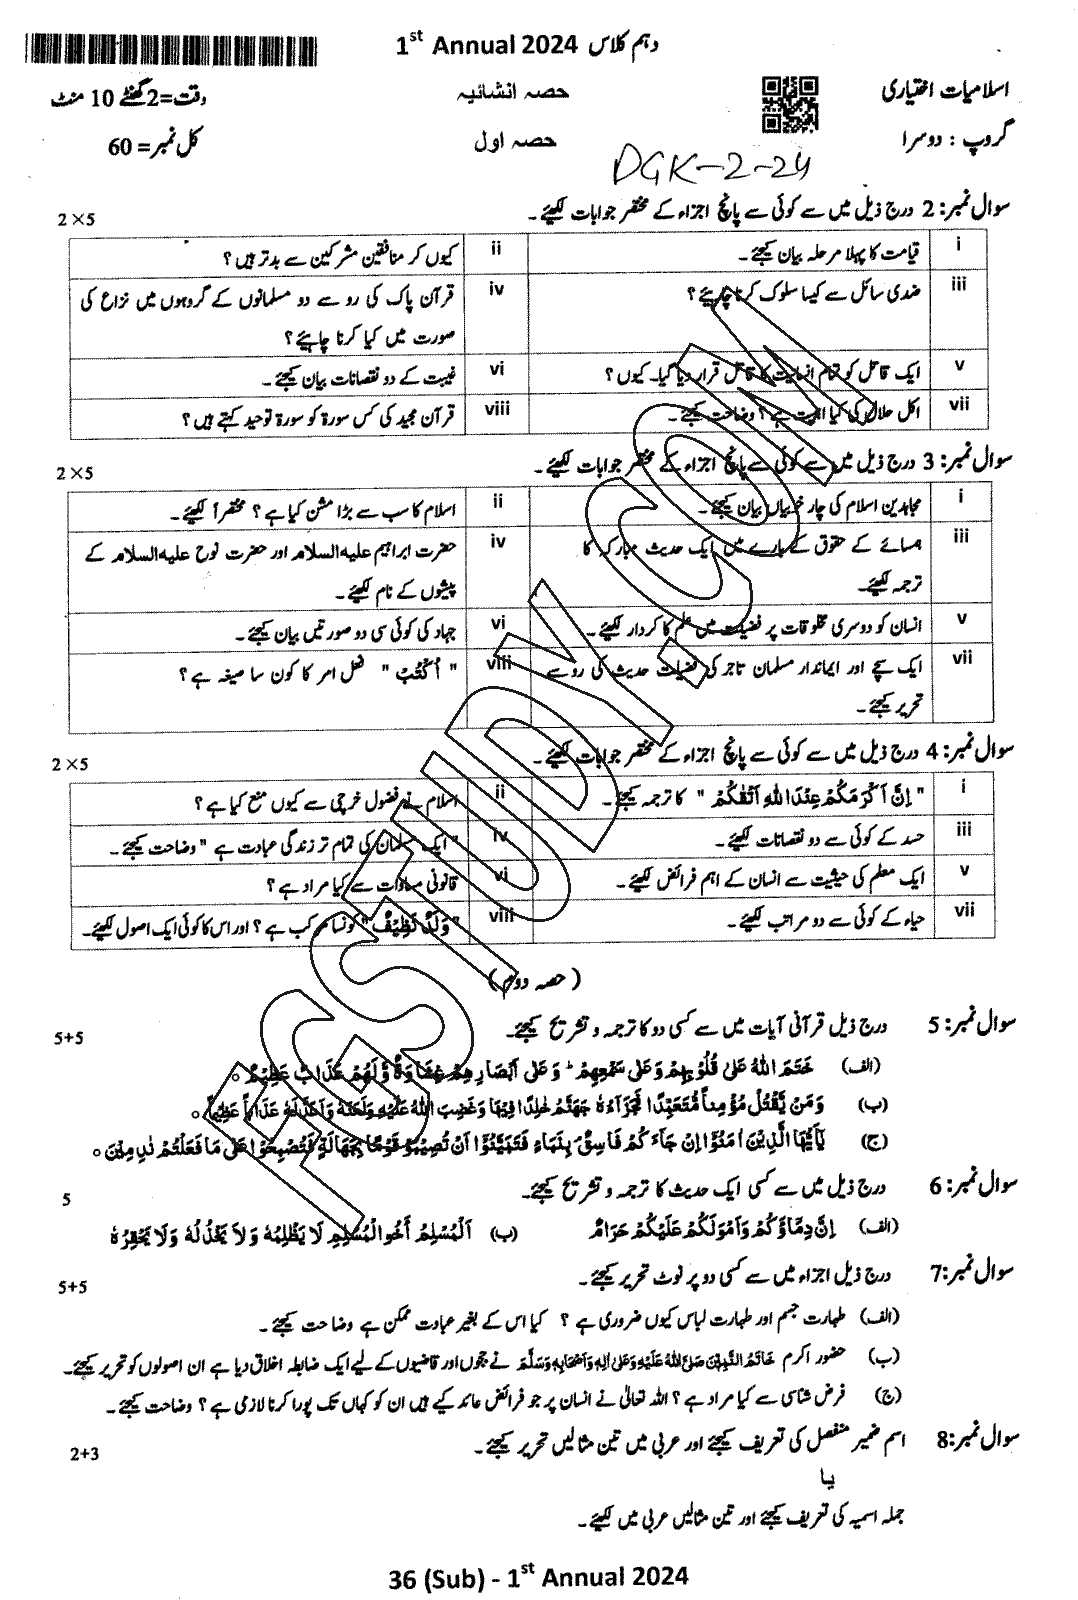 دہم کلاس 1st Annual 2024
اسلامیات اختیاری
حصہ انشائیہ
وقت=2 گھنٹے 10 منٹ
گروپ : دوسرا
حصہ اول
کل نمبر= 60
DGK-2-24
سوال نمبر: 2 درج ذیل میں سے کوئی سے پانچ اجزاء کے مختصر جوابات لکھیئے۔ 2×5
i قیامت کا پہلا مرحلہ بیان کیجئے۔
ii کیوں کر منافقین مشرکین سے بدتر ہیں؟
iii ضدی سائل سے کیسا سلوک کرنا چاہیئے؟
iv قرآن پاک کی رو سے دو مسلمانوں کے گروہوں میں نزاع کی
صورت میں کیا کرنا چاہیئے؟
v ایک قاتل کو تمام انسانیت کا قاتل قرار دیا گیا۔ کیوں؟
vi غیبت کے دو نقصانات بیان کیجئے۔
vii اکل حلال کی کیا اہمیت ہے؟ وضاحت کیجئے۔
viii قرآن مجید کی کس سورۃ کو سورۃ توحید کہتے ہیں؟
سوال نمبر: 3 درج ذیل میں سے کوئی سے پانچ اجزاء کے مختصر جوابات لکھیئے۔ 2×5
i مجاہدین اسلام کی چار خوبیاں بیان کیجئے۔
ii اسلام کا سب سے بڑا مشن کیا ہے؟ مختصراً لکھیئے۔
iii ہمسائے کے حقوق کے بارے میں ایک حدیث مبارکہ کا
ترجمہ لکھیئے۔
iv حضرت ابراہیم علیہ السلام اور حضرت نوح علیہ السلام کے
پیشوں کے نام لکھیئے۔
v انسان کو دوسری مخلوقات پر فضیلت میں علم کا کردار لکھیئے۔
vi جہاد کی کوئی سی دو صورتیں بیان کیجئے۔
vii ایک سچے اور ایماندار مسلمان تاجر کی فضیلت حدیث کی رو سے
تحریر کیجئے۔
viii "اُکْتُبْ" فعل امر کا کون سا صیغہ ہے؟
سوال نمبر: 4 درج ذیل میں سے کوئی سے پانچ اجزاء کے مختصر جوابات لکھیئے۔ 2×5
i "اِنَّ اَکْرَمَکُمْ عِنْدَ اللّٰہِ اَتْقٰکُمْ" کا ترجمہ کیجئے۔
ii اسلام نے فضول خرچی سے کیوں منع کیا ہے؟
iii حسد کے کوئی سے دو نقصانات لکھیئے۔
iv "ایک مسلمان کی تمام تر زندگی عبادت ہے" وضاحت کیجئے۔
v ایک معلم کی حیثیت سے انسان کے اہم فرائض لکھیئے۔
vi قانونی مساوات سے کیا مراد ہے؟
vii حیاء کے کوئی سے دو مراتب لکھیئے۔
viii "وَلَدٌ نَظِیْفٌ" کونسا مرکب ہے؟ اور اس کا کوئی ایک اصول لکھیئے۔
(حصہ دوم)
سوال نمبر: 5 درج ذیل قرآنی آیات میں سے کسی دو کا ترجمہ و تشریح کیجئے۔ 5+5
(الف) خَتَمَ اللّٰہُ عَلٰی قُلُوْبِھِمْ وَعَلٰی سَمْعِھِمْ ؕ وَ عَلٰٓی اَبْصَارِھِمْ غِشَاوَۃٌ وَّلَھُمْ عَذَابٌ عَظِیْمٌ ۝
(ب) وَمَنْ یَّقْتُلْ مُؤْمِنًا مُّتَعَمِّدًا فَجَزَآءُہٗ جَھَنَّمُ خٰلِدًا فِیْھَا وَغَضِبَ اللّٰہُ عَلَیْہِ وَلَعَنَہٗ وَاَعَدَّ لَہٗ عَذَابًا عَظِیْمًا ۝
(ج) یٰٓاَیُّھَا الَّذِیْنَ اٰمَنُوْٓا اِنْ جَآءَکُمْ فَاسِقٌ بِنَبَاٍ فَتَبَیَّنُوْٓا اَنْ تُصِیْبُوْا قَوْمًا بِجَھَالَۃٍ فَتُصْبِحُوْا عَلٰی مَا فَعَلْتُمْ نٰدِمِیْنَ ۝
سوال نمبر: 6 درج ذیل میں سے کسی ایک حدیث کا ترجمہ و تشریح کیجئے۔ 5
(الف) اِنَّ دِمَاؤَکُمْ وَاَمْوَلَکُمْ عَلَیْکُمْ حَرَامٌ (ب) اَلْمُسْلِمُ اَخُو الْمُسْلِمِ لَا یَظْلِمُہٗ وَ لَا یَخْذُلُہٗ وَلَا یَحْقِرُہٗ
سوال نمبر: 7 درج ذیل اجزاء میں سے کسی دو پر نوٹ تحریر کیجئے۔ 5+5
(الف) طہارت جسم اور طہارت لباس کیوں ضروری ہے؟ کیا اس کے بغیر عبادت ممکن ہے وضاحت کیجئے۔
(ب) حضور اکرم خَاتَمُ النَّبِیّٖنَ صَلَّی اللّٰہُ عَلَیْہِ وَعَلٰی اٰلِہٖ وَاَصْحَابِہٖ وَسَلَّمَ نے ججوں اور قاضیوں کے لیے ایک ضابطہ اخلاق دیا ہے ان اصولوں کو تحریر کیجئے۔
(ج) فرض شناسی سے کیا مراد ہے؟ اللہ تعالیٰ نے انسان پر جو فرائض عائد کیے ہیں ان کو کہاں تک پورا کرنا لازمی ہے؟ وضاحت کیجئے۔
سوال نمبر: 8 اسم ضمیر منفصل کی تعریف کیجئے اور عربی میں تین مثالیں تحریر کیجئے۔ 2+3
یا
جملہ اسمیہ کی تعریف کیجئے اور تین مثالیں عربی میں لکھیئے۔
36 (Sub) - 1st Annual 2024
FGSTUDY.COM